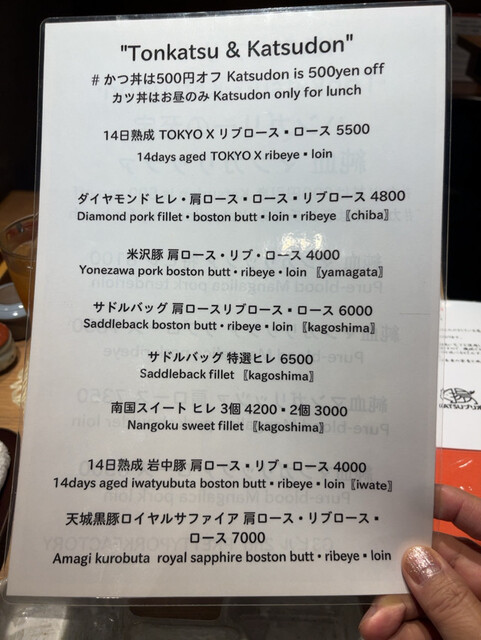 "Tonkatsu & Katsudon"
# かつ丼は500円オフ Katsudon is 500yen off
カツ丼はお昼のみ Katsudon only for lunch
14日熟成 TOKYO X リブロース・ロース 5500
14days aged TOKYO X ribeye・loin
ダイヤモンド ヒレ・肩ロース・ロース・リブロース 4800
Diamond pork fillet・boston butt・loin・ribeye 〖chiba〗
米沢豚 肩ロース・リブ・ロース 4000
Yonezawa pork boston butt・ribeye・loin 〖yamagata〗
サドルバッグ 肩ロースリブロース・ロース 6000
Saddleback boston butt・ribeye・loin 〖kagoshima〗
サドルバッグ 特選ヒレ 6500
Saddleback fillet 〖kagoshima〗
南国スイート ヒレ 3個 4200・2個 3000
Nangoku sweet fillet 〖kagoshima〗
14日熟成 岩中豚 肩ロース・リブ・ロース 4000
14days aged iwatyubuta boston butt・ribeye・loin〖iwate〗
天城黒豚ロイヤルサファイア 肩ロース・リブロース・
ロース 7000
Amagi kurobuta royal sapphire boston butt・ribeye・loin